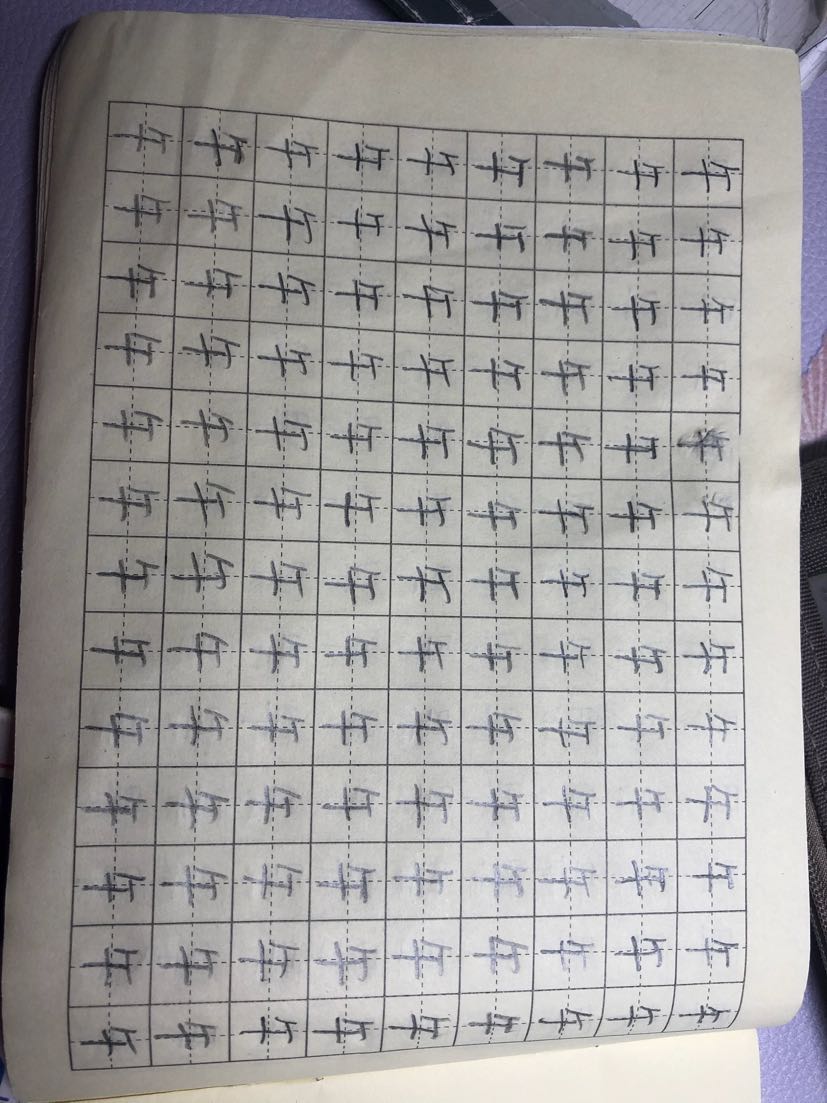 年年年年年年年年年年年年年
年年年年年年年年年年年年年
年年年年年年年年年年年年年
年年年年年年年年年年年年年
年年年年年年年年年年年年年
年年年年年年年年年年年年年
年年年年年年年年年年年年年
年年年年年年年年年年年年年
年年年年年年年年年年年年年